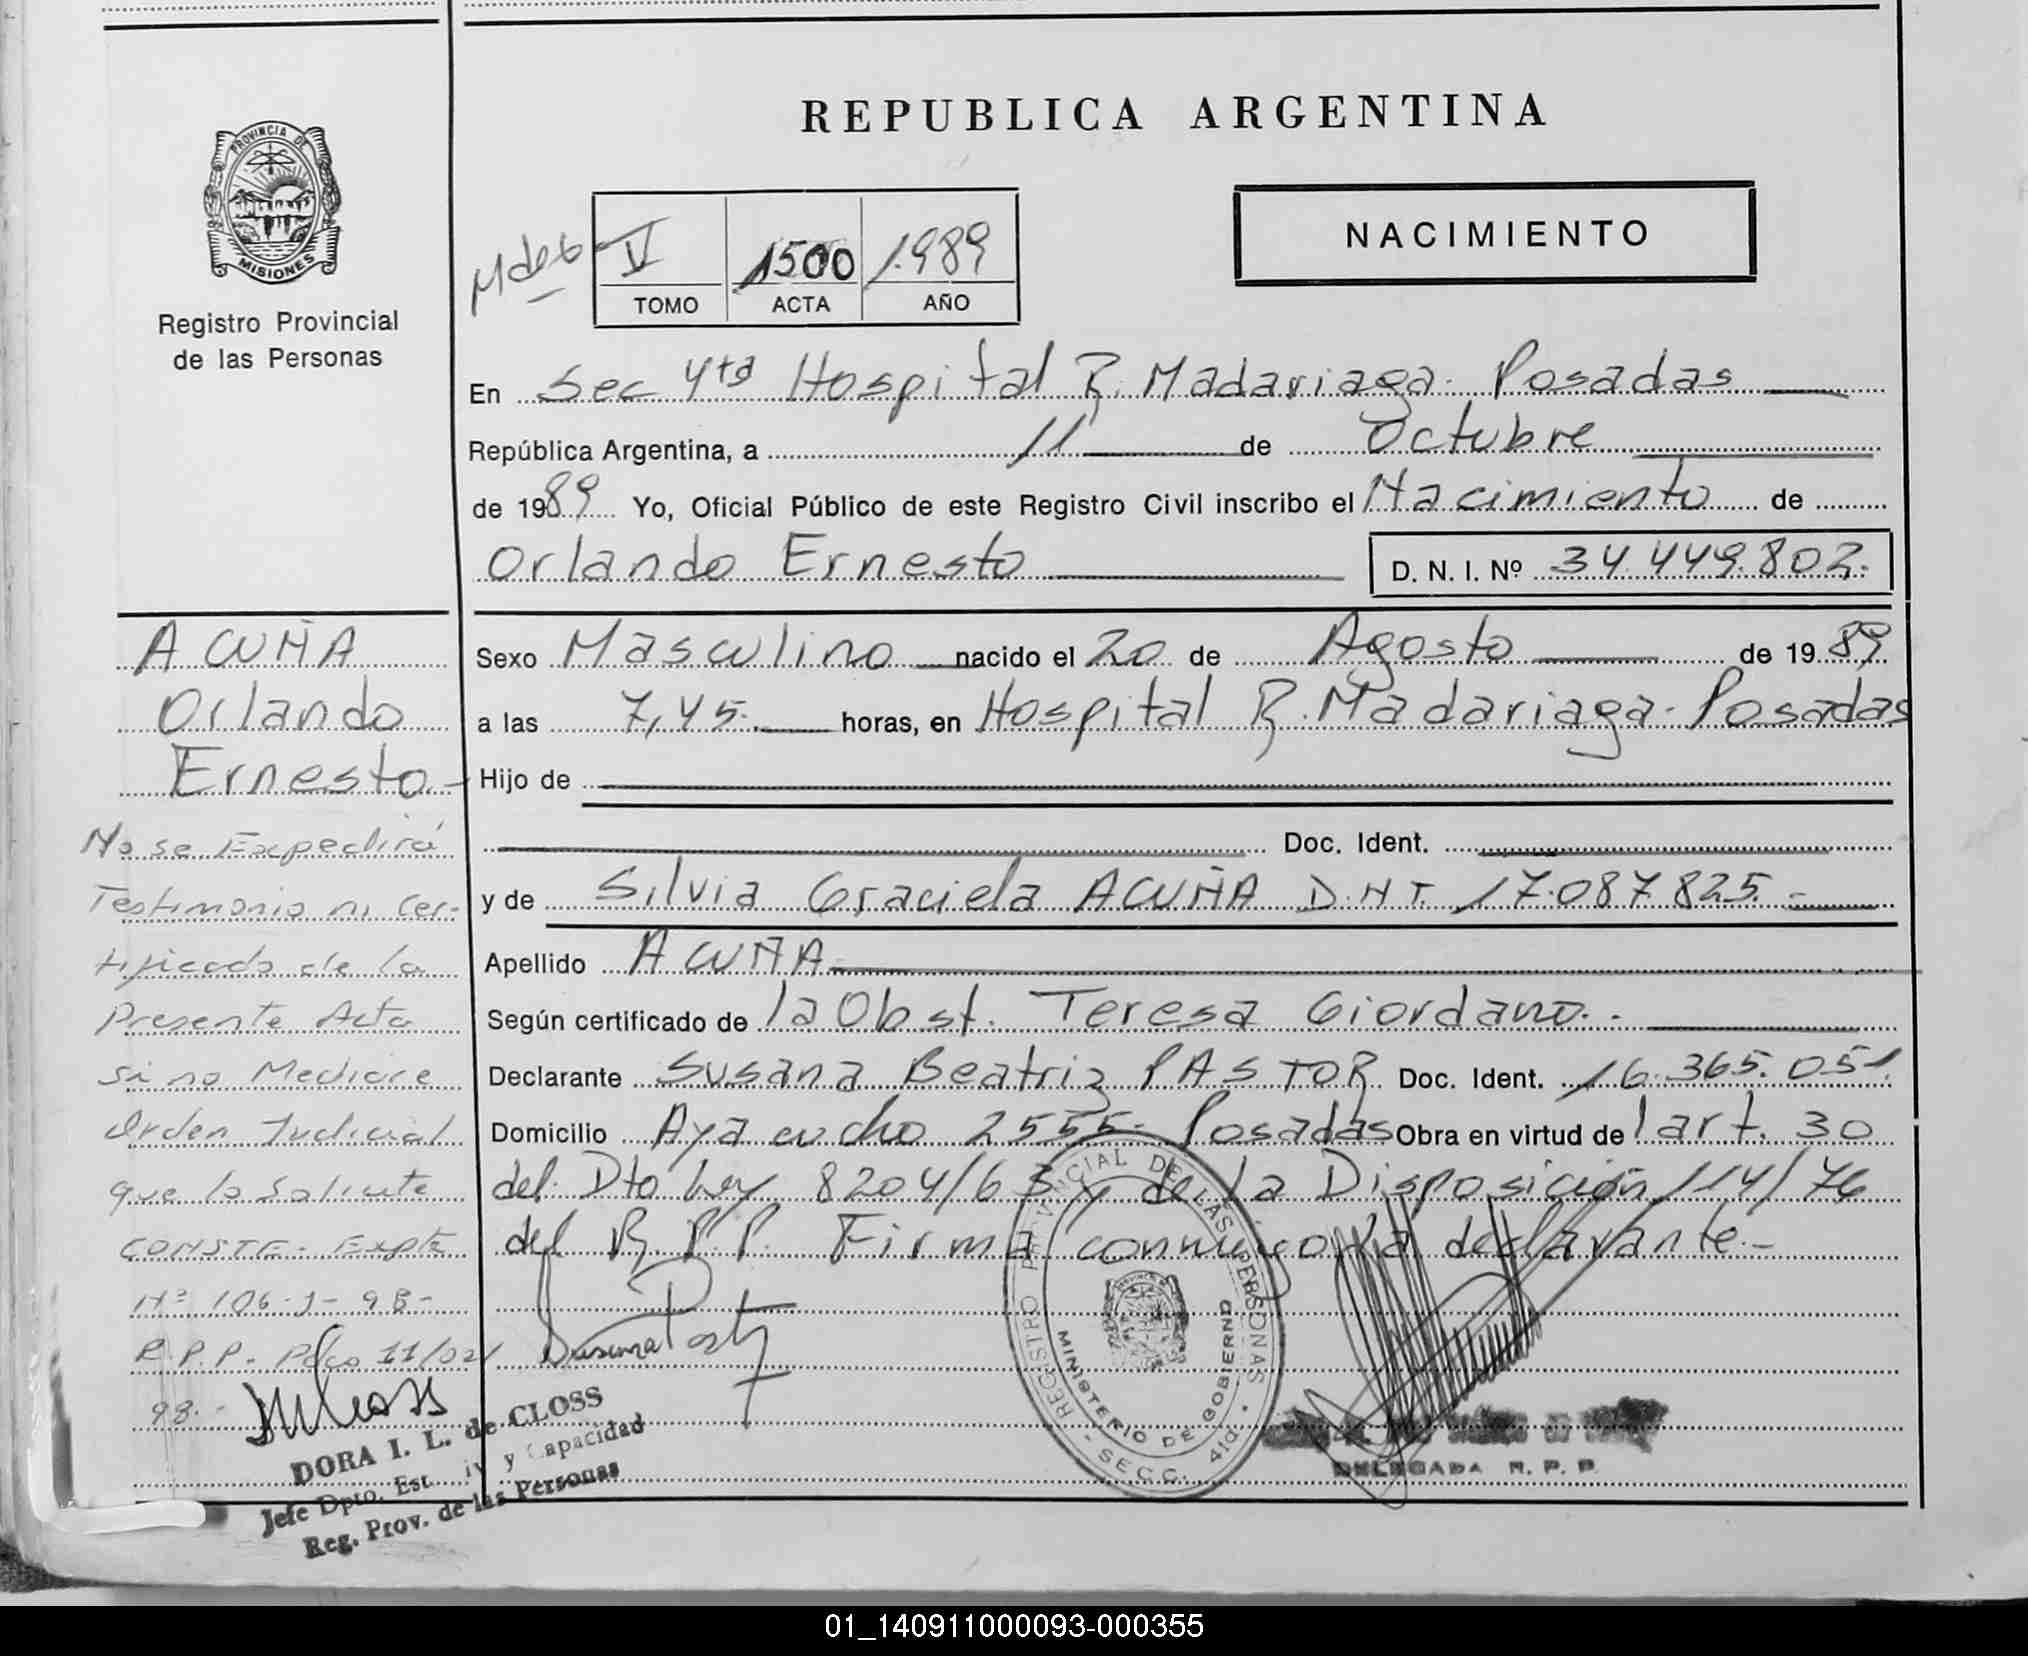 REPUBLICA ARGENTINA
PROVINCIA DE
MISIONES
Registro Provincial
de las Personas
NACIMIENTO
V 1500 1.989
TOMO ACTA AÑO
En Sec 4ta Hospital R. Madariaga. Posadas
República Argentina, a 11 de Octubre
de 1989 Yo, Oficial Público de este Registro Civil inscribo el Nacimiento de
Orlando Ernesto D. N. I. Nº 34.449.802.
ACUÑA
Orlando
Ernesto.-
Sexo Masculino nacido el 20 de Agosto de 1989
a las 7,45. horas, en Hospital R. Madariaga. Posadas
Hijo de
Doc. Ident.
y de Silvia Graciela ACUÑA D.N.I. 17.087.825.-
Apellido ACUÑA
Según certificado de la Obst. Teresa Giordano.
Declarante Susana Beatriz PASTOR Doc. Ident. 16.365.051.
Domicilio Ayacucho 2555. Posadas Obra en virtud de l art. 30
del Dto Ley 8204/63 y de la Disposición 114/76
del R.P.P. Firma conmigo la declarante.-
No se Expedirá
Testimonio ni Cer-
tificado de la
Presente Acta
si no Mediare
Orden Judicial
que lo Solicite
CONSTE. Expte
Nº 106-J-98-
R.P.P. Pdas 11/02/
98.-
DORA I. L. de CLOSS
Jefe Dpto. Est. y Capacidad
Reg. Prov. de las Personas
REGISTRO PROVINCIAL DE LAS PERSONAS
MINISTERIO DE GOBIERNO
- SECC. 4ta. -
DELEGADA R. P. P.
01_140911000093-000355